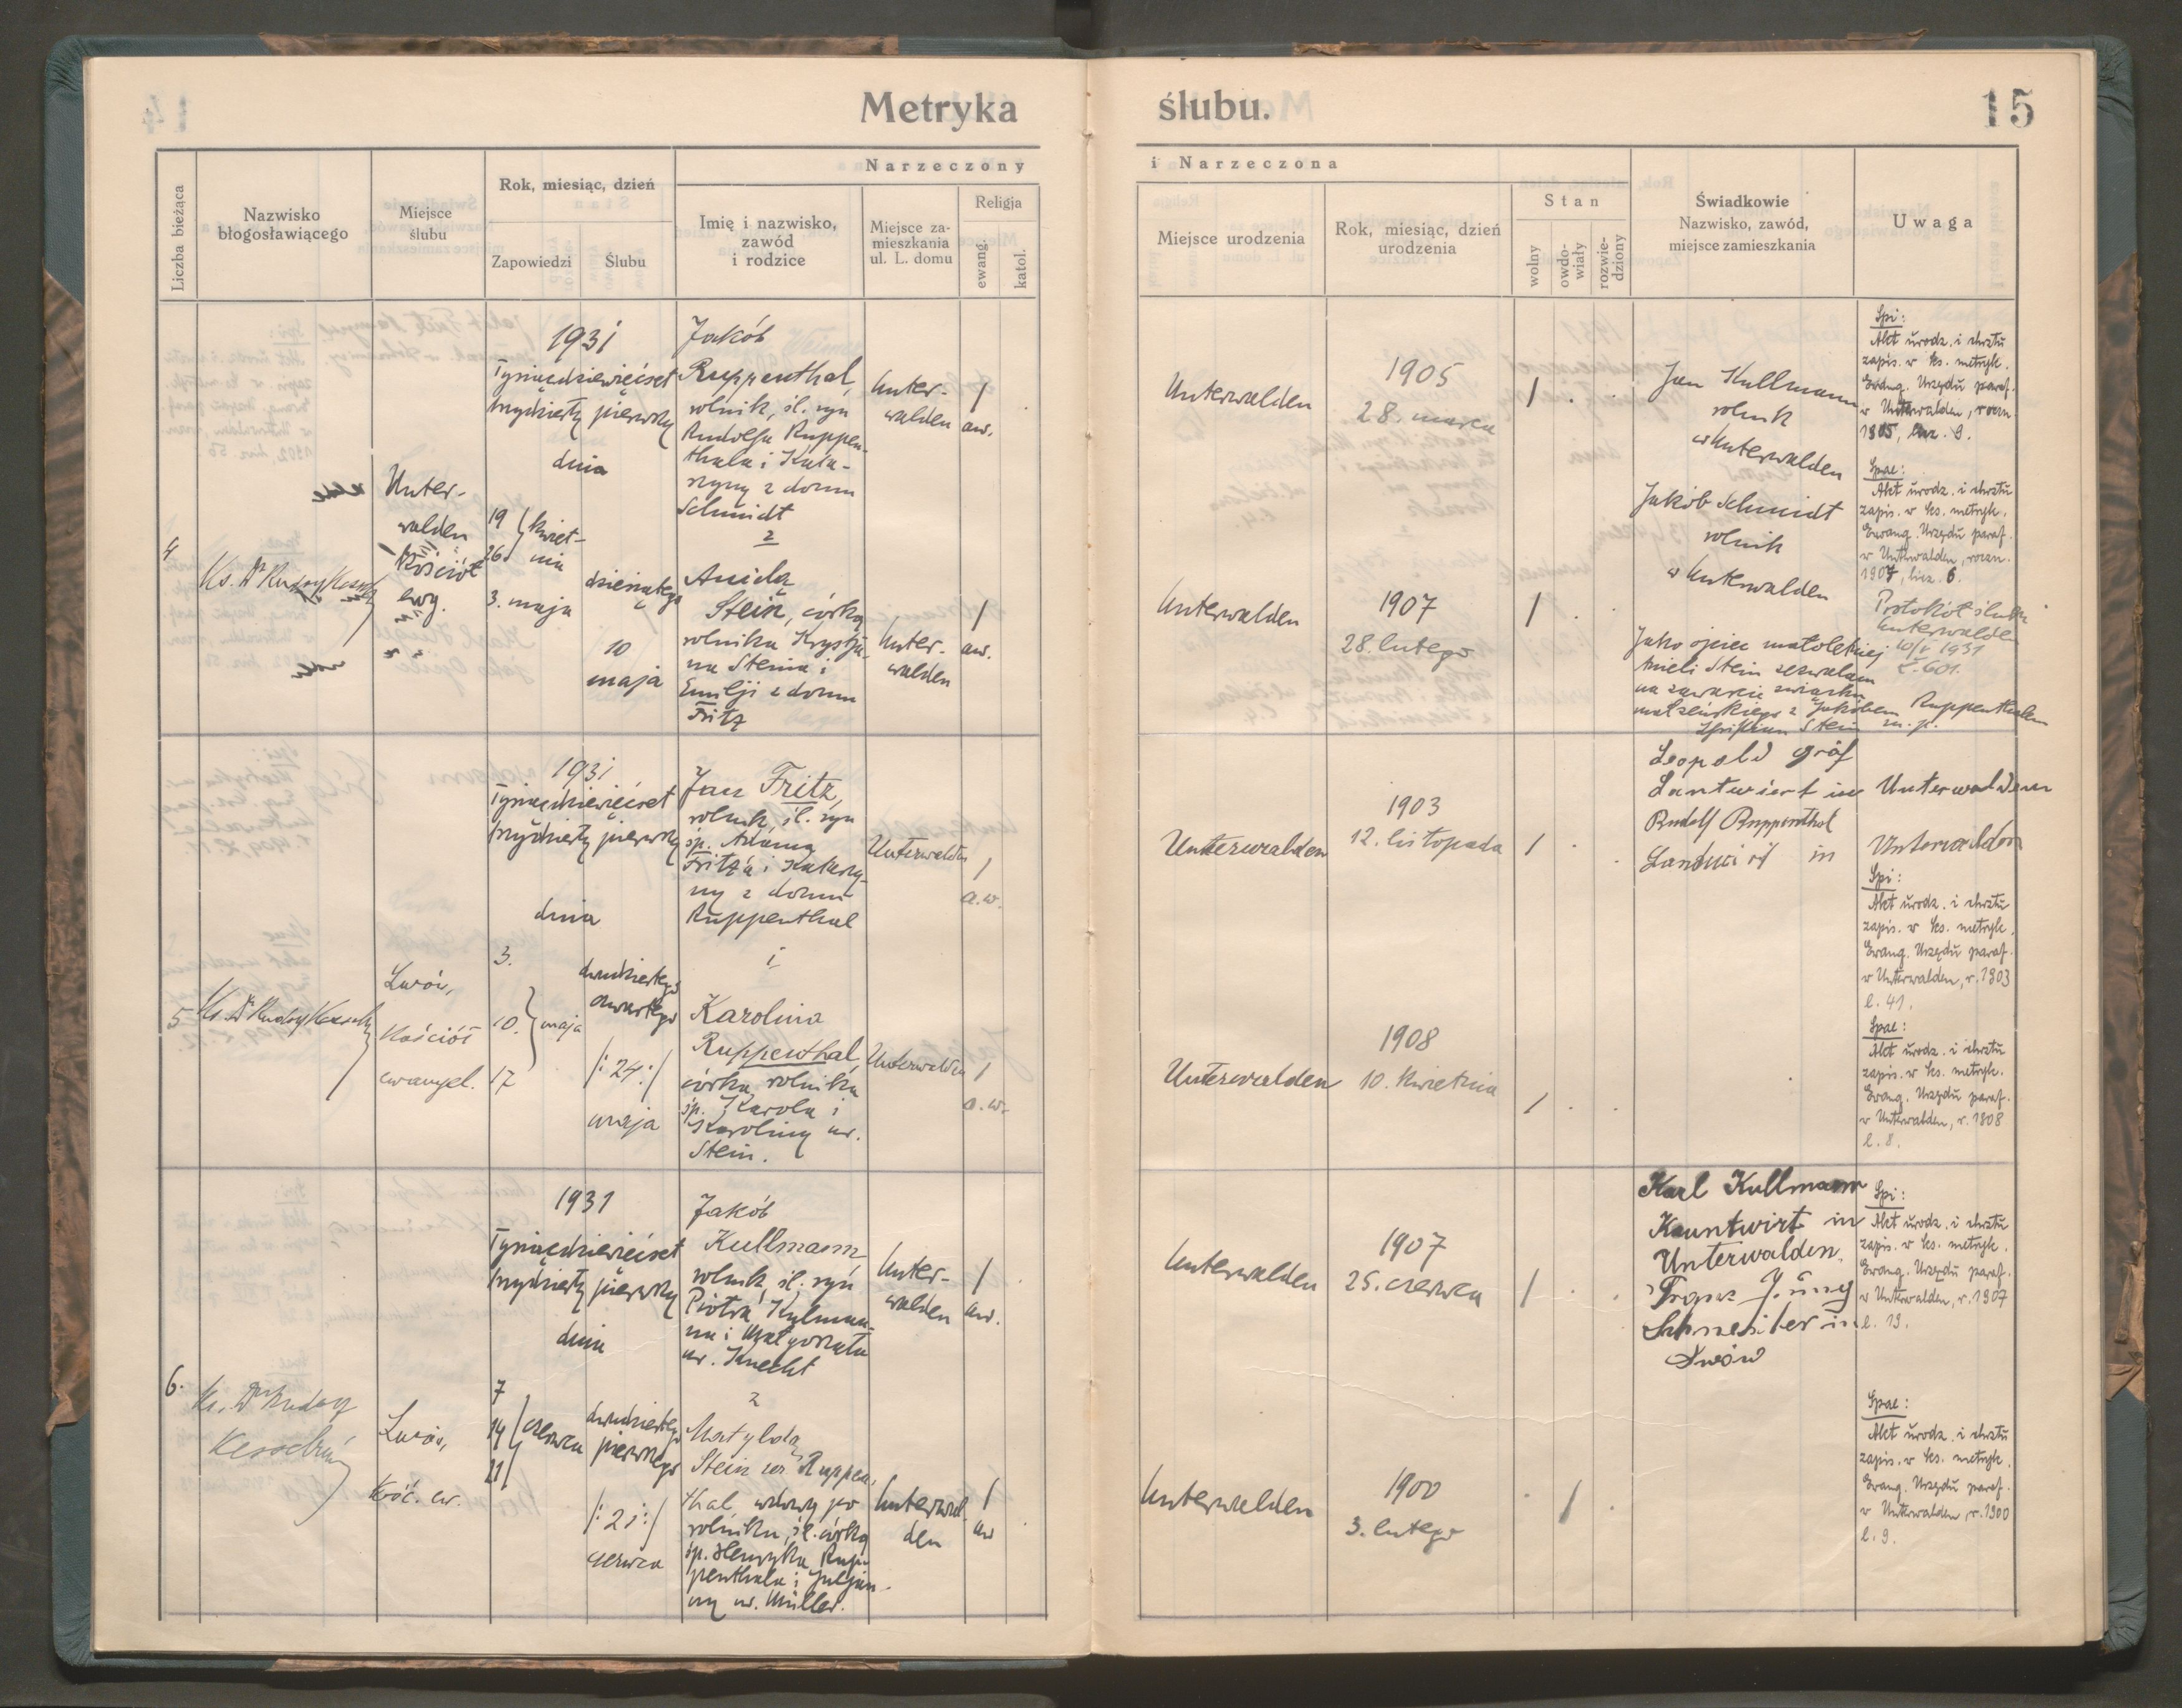 Metryka ślubu.
15
Liczba bieżąca
Nazwisko
błogosławiącego
Miejsce
ślubu
Rok, miesiąc, dzień
Zapowiedzi
Ślubu
Narzeczony
Imię i nazwisko,
zawód
i rodzice
Miejsce za-
mieszkania
ul. L. domu
Religja
ewang.
katol.
i Narzeczona
Miejsce urodzenia
Rok, miesiąc, dzień
urodzenia
Stan
wolny
owdo-
wiały
rozwie-
dziony
Świadkowie
Nazwisko, zawód,
miejsce zamieszkania
Uwaga
4
Ks. Dr Rudolf Kesselring
Unter-
walden
Kościół
ewg.
1931
Tysiącdziewięćset
trzydziesty pierwszy
dnia
19
26 kwiet-
nia
3. maja
dziesiątego
10
maja
Jakób
Ruppenthal,
rolnik, śl. syn
Rudolfa Ruppen-
thala i Kata-
rzyny z domu
Schmidt
z
Anielą
Stein, córką
rolnika Krystja-
na Steina i
Emilji z domu
Fritz
Unter-
walden
1
aw.
Unter-
walden
1
aw.
Unterwalden
1905
28. marca
1
Unterwalden
1907
28. lutego
1
Jan Kullmann
rolnik
w Unterwalden
Jakób Schmidt
rolnik
w Unterwalden
Jako ojciec małoletniej
Anieli Stein zezwalam
na zawarcie związku
małżeńskiego z Jakóbem Ruppenthalem
Christian Stein m. p.
Spi:
Akt urodz. i chrztu
zapis. w ks. metryk.
Ewang. Urzędu paraf.
w Unterwalden, roczn.
1905, licz. 9.
Spae:
Akt urodz. i chrztu
zapis. w ks. metryk.
Ewang. Urzędu paraf.
w Unterwalden, roczn.
1907, licz. 6.
Protokół ślubu
Unterwalden
10/V 1931
L. 601.
5
Ks. Dr Rudolf Kesselring
Lwów,
Kościół
ewangel.
1931
Tysiącdziewięćset
trzydziesty pierwszy
dnia
3.
10. maja
17
dwudziestego
czwartego
/:24:/
maja
Jan Fritz,
rolnik, śl. syn
śp. Adama
Fritz'a i Katarzy-
ny z domu
Ruppenthal
i
Karolina
Ruppenthal,
córka rolnika
śp. Karola i
Karoliny ur.
Stein.
Unterwalden
1
a.w.
Unterwalden
1
a.w.
Unterwalden
1903
12. listopada
1
Unterwalden
1908
10. kwietnia
1
Leopold Gröf
Lantwiert in Unterwalden
Rudolf Ruppenthal
Landwirt in Unterwalden
Spi:
Akt urodz. i chrztu
zapis. w ks. metryk.
Ewang. Urzędu paraf.
w Unterwalden, r. 1903
l. 41.
Spae:
Akt urodz. i chrztu
zapis. w ks. metryk.
Ewang. Urzędu paraf.
w Unterwalden, r. 1908
l. 8.
6.
Ks. Dr Rudolf
Kesselring
Lwów,
Kość. ew.
1931
Tysiącdziewięćset
trzydziesty pierwszy
dnia
7
14 czerwca
21
dwudziestego
pierwszego
/:21:/
czerwca
Jakób
Kullmann
rolnik, śl. syn
Piotra Kulman-
na i Małgorzaty
ur. Knecht
z
Matyldą
Stein ur. Ruppen-
thal wdową po
rolniku, śl. córką
śp. Henryka Rup-
penthala i Juljan-
ny ur. Müller.
Unter-
walden
1
aw.
Unterwal-
den
1
aw
Unterwalden
1907
25. czerwca
1
Unterwalden
1900
3. lutego
1
Karl Kullmann
Kauntwirt in
Unterwalden.
Franz Jüng
Schneiter in
Lwów
Spi:
Akt urodz. i chrztu
zapis. w ks. metryk.
Ewang. Urzędu paraf.
w Unterwalden, r. 1907
l. 19.
Spae:
Akt urodz. i chrztu
zapis. w ks. metryk.
Ewang. Urzędu paraf.
w Unterwalden, r. 1900
l. 9.